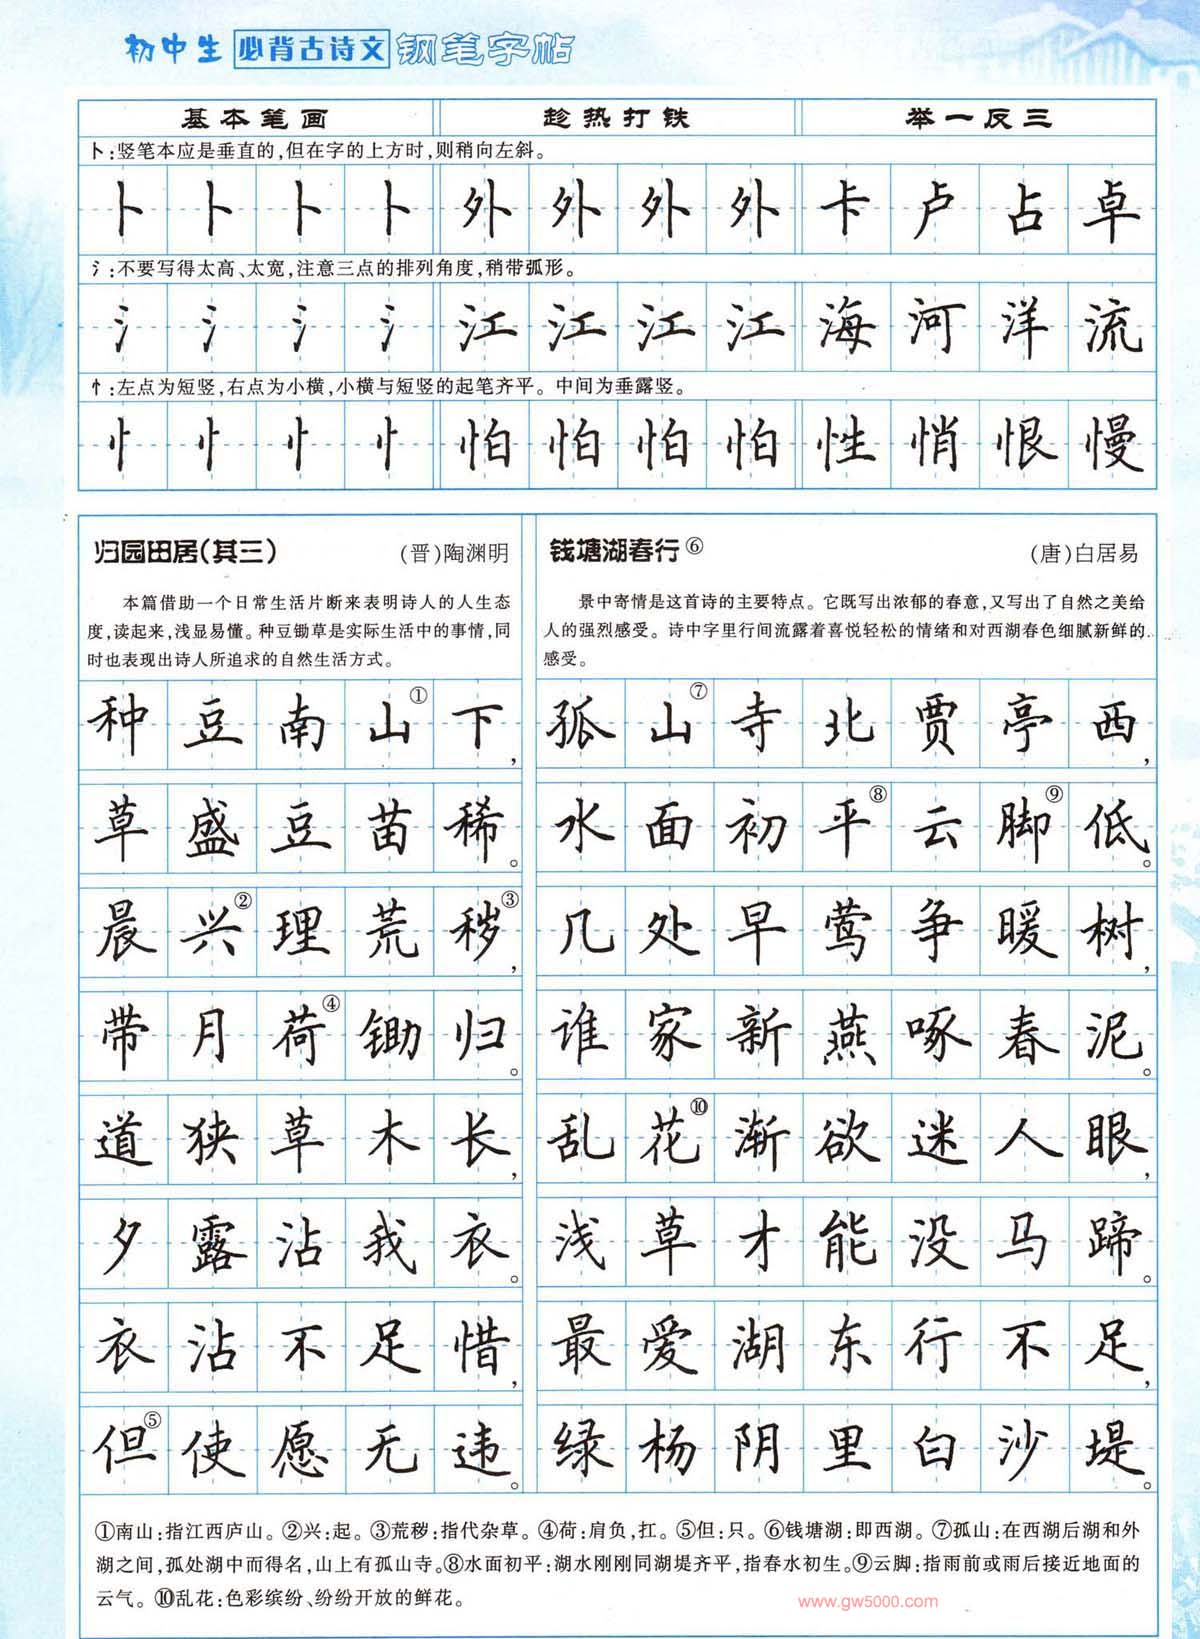 初中生 必背古诗文 钢笔字帖
基本笔画 趁热打铁 举一反三
卜:竖笔本应是垂直的,但在字的上方时,则稍向左斜。
卜 卜 卜 卜 外 外 外 外 卡 卢 占 卓
氵:不要写得太高、太宽,注意三点的排列角度,稍带弧形。
氵 氵 氵 氵 江 江 江 江 海 河 洋 流
忄:左点为短竖,右点为小横,小横与短竖的起笔齐平。中间为垂露竖。
忄 忄 忄 忄 怕 怕 怕 怕 性 悄 恨 慢
归园田居(其三) (晋)陶渊明
本篇借助一个日常生活片断来表明诗人的人生态
度,读起来,浅显易懂。种豆锄草是实际生活中的事情,同
时也表现出诗人所追求的自然生活方式。
种豆南山①下,
草盛豆苗稀。
晨兴②理荒秽③,
带月荷④锄归。
道狭草木长,
夕露沾我衣。
衣沾不足惜,
但⑤使愿无违。
钱塘湖春行⑥ (唐)白居易
景中寄情是这首诗的主要特点。它既写出浓郁的春意,又写出了自然之美给
人的强烈感受。诗中字里行间流露着喜悦轻松的情绪和对西湖春色细腻新鲜的
感受。
孤山⑦寺北贾亭西,
水面初平⑧云脚⑨低。
几处早莺争暖树,
谁家新燕啄春泥。
乱花⑩渐欲迷人眼,
浅草才能没马蹄。
最爱湖东行不足,
绿杨阴里白沙堤。
①南山:指江西庐山。②兴:起。③荒秽:指代杂草。④荷:肩负,扛。⑤但:只。⑥钱塘湖:即西湖。⑦孤山:在西湖后湖和外
湖之间,孤处湖中而得名,山上有孤山寺。⑧水面初平:湖水刚刚同湖堤齐平,指春水初生。⑨云脚:指雨前或雨后接近地面的
云气。⑩乱花:色彩缤纷、纷纷开放的鲜花。
www.gw5000.com